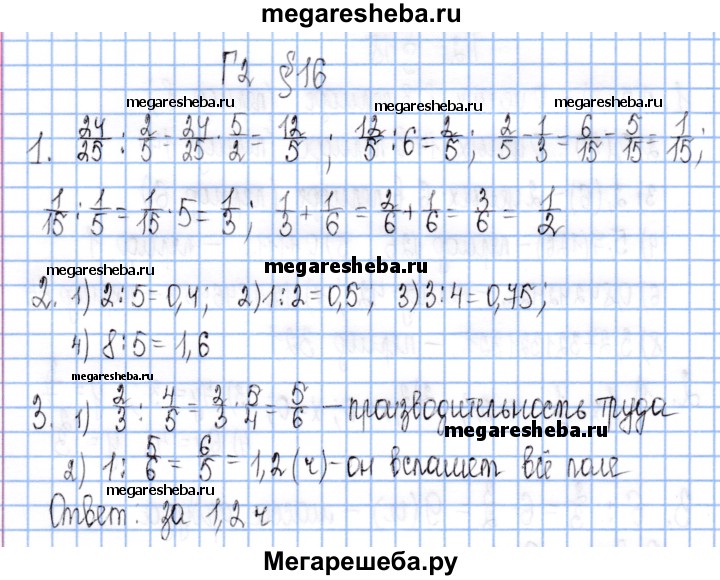 megaresheba.ru
Г2 §16
megaresheba.ru megaresheba.ru megaresheba.ru
1. 24/25 : 2/5 = 24/25 · 5/2 = 12/5 ; 12/5 : 6 = 2/5 ; 2/5 - 1/3 = 6/15 - 5/15 = 1/15 ;
1/15 : 1/5 = 1/15 · 5 = 1/3 ; 1/3 + 1/6 = 2/6 + 1/6 = 3/6 = 1/2
megaresheba.ru megaresheba.ru megaresheba.ru
2. 1) 2 : 5 = 0,4 ; 2) 1 : 2 = 0,5 , 3) 3 : 4 = 0,75 ;
4) 8 : 5 = 1,6
megaresheba.ru
3. 1) 2/3 : 4/5 = 2/3 · 5/4 = 5/6 — производительность труда
megaresheba.ru
2) 1 : 5/6 = 6/5 = 1,2 (ч) - он вспашет всё поле
megaresheba.ru
Ответ: за 1,2 ч
Мегарешеба.ру